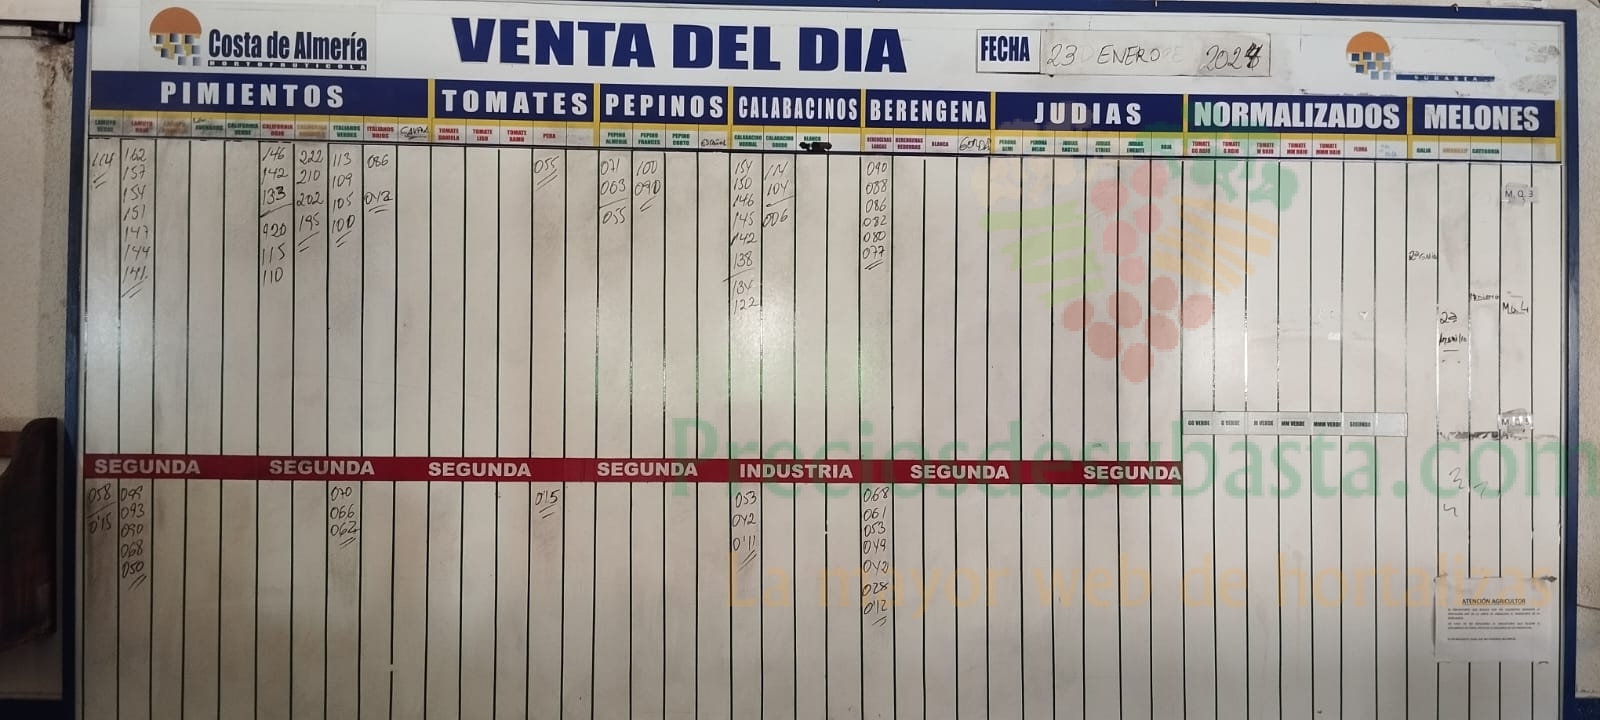 Costa de Almería
HORTOFRUTICOLA
VENTA DEL DIA
FECHA 23 ENERO
SUBASTA
PIMIENTOS TOMATES PEPINOS CALABACINOS BERENGENA JUDIAS NORMALIZADOS MELONES
LAMUYO VERDE
LAMUYO ROJO
CALIFORNIA VERDE
CALIFORNIA ROJO
ITALIANOS VERDES
ITALIANOS ROJOS
TOMATE DANIELA
TOMATE LISO
TOMATE RAMO
PERA
PEPINO ALMERIA
PEPINO FRANCES
PEPINO CORTO
ESPAÑOL
CALABACINO NORMAL
CALABACINO GORDO
BLANCO
BERENGENAS LARGAS
BERENGENAS REDONDAS
BLANCA
GORDA
PERONA SEMI
PERONA MELAR
JUDIAS RASTRA
JUDIAS STRIKE
JUDIAS EMERITE
ROJA
TOMATE GG ROJO
TOMATE G ROJO
TOMATE M ROJO
TOMATE MM ROJO
TOMATE MMM ROJO
FLORA
GALIA
AMARILLO
CATEGORIA
114
162
157
154
151
147
144
141
146
142
133
120
115
110
222
210
202
195
113
109
105
100
086
042
055
071
063
055
100
090
154
150
146
145
142
138
134
122
114
104
006
090
088
086
082
080
077
M.Q.3
GG VERDE
G VERDE
M VERDE
MM VERDE
MMM VERDE
SEGUNDA
SEGUNDA SEGUNDA SEGUNDA SEGUNDA INDUSTRIA SEGUNDA SEGUNDA
058
0'15
099
093
090
068
050
070
066
062
0'15
053
042
0'11
068
061
053
049
042
028
0'12
ATENCIÓN AGRICULTOR
Preciosdesubasta.com
La mayor web de hortalizas